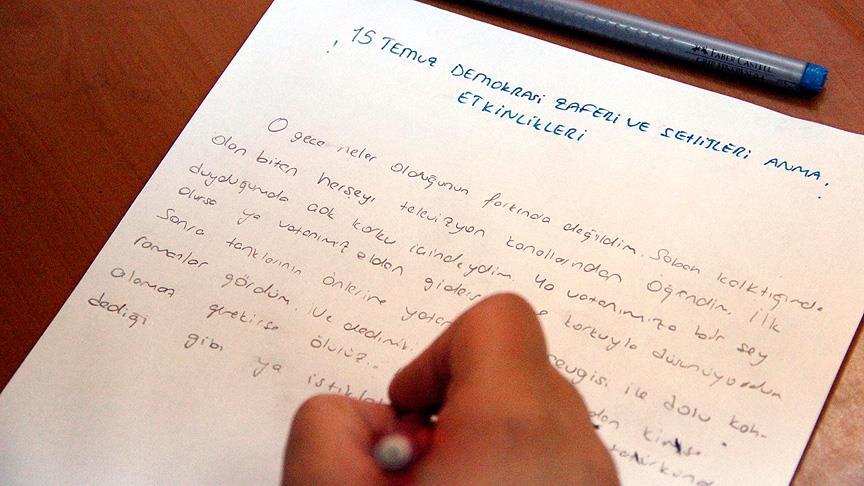 ! 15 TEMUZ DEMOKRASİ ZAFERİ VE ŞEHİTLERİ ANMA !
ETKİNLİKLERİ
O gece neler olduğunun farkında değildim. Sabah kalktığımda
Olan biten herşeyi televizyon kanallarından öğendim. İlk
duyduğumda çok korku içindeydim. Ya vatanımıza bir şey
olursa ya vatanımız elden giderse korkuyla düşünüyordum
Sonra tankların önlerine sevgisi ile dolu kah-
ramanlar gördüm. Ve dedimki kimse
alamaz gerekirse ölürüz.. Atatürkünde
dediği gibi ya istiklal
FABER-CASTELL
GRIP FINEPEN